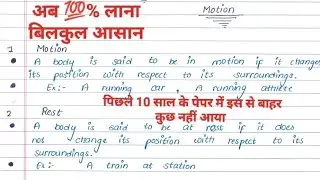 अब 💯% लाना
बिलकुल आसान
Motion
1 Motion
A body is said to be in motion if it changes
its position with respect to its surroundings.
Ex:- A running car, A running athlete
पिछले 10 साल के पेपर में इस से बाहर
कुछ नहीं आया
2 Rest
A body is said to be at rest if it does
not change its position with respect to its
surroundings.
Ex:- A train at station